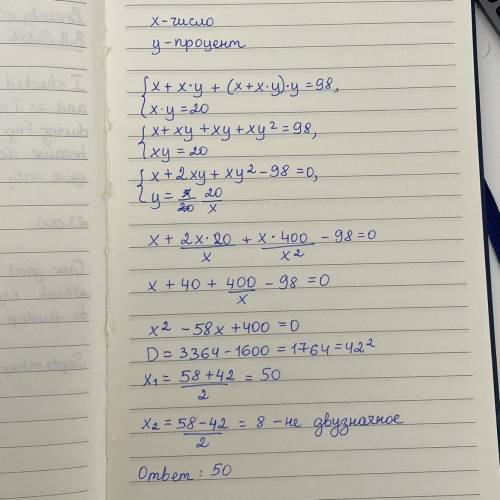 x-число
y-процент
{x + x·y + (x+x·y)·y = 98,
{x·y = 20
{x + xy + xy + xy² = 98,
{xy = 20
{x + 2xy + xy² - 98 = 0,
{y = 20/x
x + 2x·20/x + x·400/x² - 98 = 0
x + 40 + 400/x - 98 = 0
x² - 58x + 400 = 0
D = 3364 - 1600 = 1764 = 42²
x₁ = 58+42/2 = 50
x₂ = 58-42/2 = 8 - не двузначное
Ответ: 50